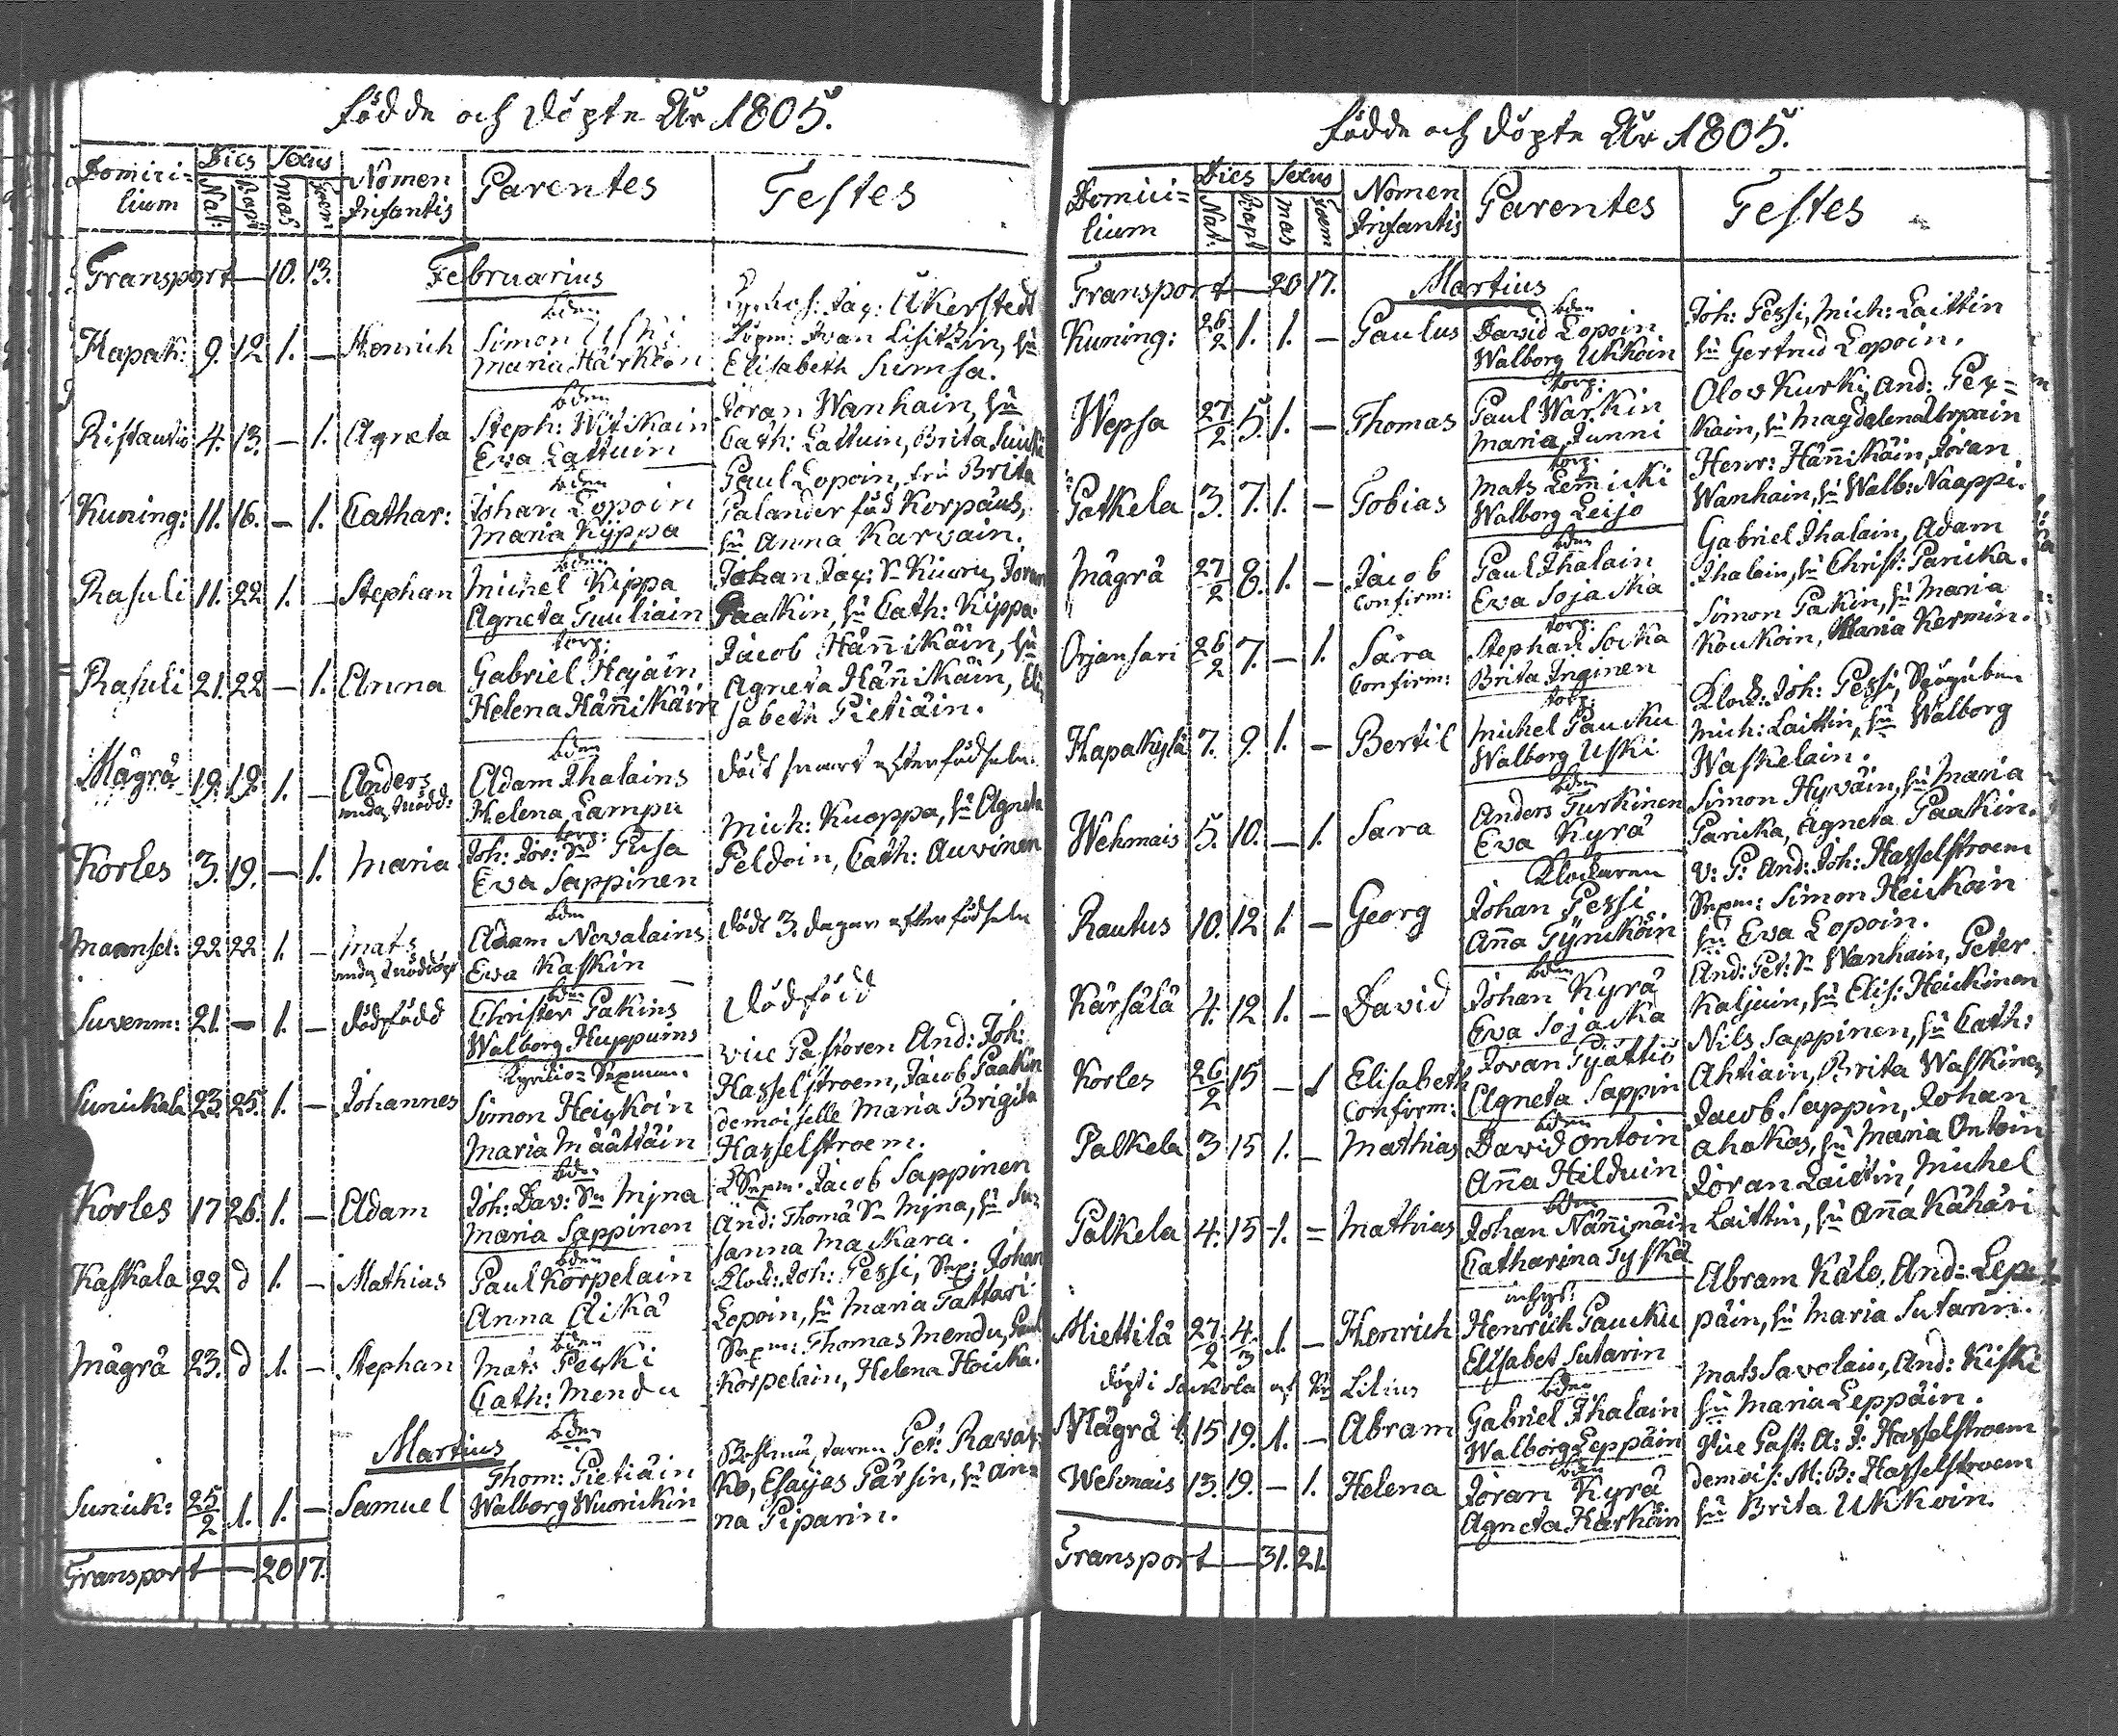 Födde och döpte År 1805.
Domici-
lium
Dies
Nat:
Bapt:
Sexus
mas
foem:
Nomen
Infantis
Parentes
Testes
Transport — 10. 13.
Februarius
Kapak: 9. 12 1. — Henrich
bden
Simon Uski
Maria Härkön
Jac: Åkerstedt
Ivan Lisitzin, hu
Elisabeth Sumsa.
Ristautio 4. 13. — 1. Agneta
bden
Steph: Witikain
Eva Lattuin
Jöran Wanhain, hu
Cath: Lattuin, Brita
Kuning: 11. 16. — 1. Cathar:
bden
Johan Lopoin
Maria Kippa
Paul Lopoin, fru Brita
Palander född Korpäus,
hu Anna Karvain.
Rasuli 11. 22 1. — Stephan
bden
Michel Kippa
Agneta Tuuliain
Johan Jac: Sn Kiuru, Jöran
Paakin, hu Cath: Kippa.
Rasuli 21. 22 — 1. Anna
torp:
Gabriel Hajain
Helena Hännikäin
Jacob Hännikäin, hu
Agneta Hännikäin, Eli
sabeth Pietiäin.
Mägrä 19. 19. 1. — Anders
bden
Adam Ihalains
Helena Lampu
död snart efter födseln.
Korles 3. 19. — 1. Maria
torp:
Joh: Jör: Sn Pusa
Eva Sappinen
Mich: Kuoppa, hu Agneta
Peldoin, Cath: Auvinen
Maansel: 22 22 1. — Mats
bden
Adam Novalains
Eva Kaskin
död 3. dagar efter födseln
Suvenm: 21. — 1. — dödfödd
bden
Christer Pakins
Walborg Huppuins
dödfödd
Sunickala 23. 25. 1. — Johannes
Kyrkio-Sexman.
Simon Heickoin
Maria Määttäin
vice Pastoren And: Joh:
Hasselstroem, Jacob Paakin
demoiselle Maria Brigita
Hasselstroem.
Korles 17 26. 1. — Adam
bden
Joh: Dav: Sn Mjna
Maria Sappinen
Sexm: Jacob Sappinen
And: Thomä Sn Mjna, hu Su-
sanna Mackara.
Kaskala 22 d 1. — Mathias
bden
Paul Korpelain
Anna Äikä
Klock: Joh: Pessi, Sex: Johan
Lopoin, hu Maria Tattari
Mägrä 23. d 1. — Stephan
bden
Mats Peski
Cath: Mendu
Sexm: Thomas Mendu, Paul
Korpelain, Helena Hoicka.
Martius
Sunick: 25/2 1. 1. — Samuel
bden
Thom: Pietiäin
Walborg Wuorickin
Pet: Ravat-
ko, Esaijas Pärsin, hu An-
na Piparin.
Transport — 20 17.
Födde och döpte År 1805.
Domici-
lium
Dies
Nat:
Bapt
Sexus
mas
foem
Nomen
Infantis
Parentes
Testes
Transport — 20 17.
Martius
Kuning: 26/2 1. 1. — Paulus
bden
David Lopoin
Walborg Ukkoin
Joh: Pessi, Mich: Laittin
hu Gertrud Lopoin.
Wepsa 27/2 5. 1. — Thomas
torp:
Paul Warkin
Maria Junni
Olov Kurki, And: Pey-
kain, hu Magdalena Urpain
Patkela 3. 7. 1. — Tobias
torp:
Mats Lemicki
Walborg Leijo
Henr: Hännikäin, Jöran
Wanhain, hu Walb: Naappi.
Mägrä 27/2 8. 1. — Jacob
Confirm:
bden
Paul Ihalain
Eva Sojacka
Gabriel Ihalain, Adam
Ihalain, hu Christ: Paricka.
Orjansari 26/2 7. — 1. Sara
Confirm:
torp:
Stephan Socka
Brita Inginen
Simon Pakin, hu Maria
Koukoin, Maria Kermin.
Kapakylä 7. 9. 1. — Bertil
torp:
Michel Paucku
Walborg Uski
Klock: Joh: Pessi,
Mich: Laittin, hu Walborg
Waskelain.
Wehmais 5. 10. — 1. Sara
bden
Anders Turkinen
Eva Kyrä
Simon Hyväin, hu Maria
Paricka, Agneta Paakin.
Rautus 10. 12 1. — Georg
Klockaren
Johan Pessi
Aña Tyncköin
V: P: And: Joh: Hasselstroem
Sexm: Simon Heickoin
hu Eva Lopoin.
Kärsälä 4. 12 1. — David
bden
Johan Kyrä
Eva Sojacka
And: Pet: Sn Wanhain, Peter
Kaljuin, hu Elis: Heickinen
Korles 26/2 15 — 1 Elisabeth
Confirm:
Jöran Pyättiö
Agneta Sappin
Nils Sappinen, hu Cath:
Ahtiain, Brita Waskinen
Palkela 3 15 1. — Mathias
bden
David Ontoin
Aña Hilduin
Jacob Sappin, Johan
Ahokas, hu Maria Ontoin
Palkela 4. 15 1. = Mathias
bden
Johan Nännimäin
Catharina Tyskä
Jöran Laittin, Michel
Laittin, hu Aña Kähäri
Miettilä 27/2 4/3 1. — Henrich
inhys:
Henrich Paucku
Elisabet Sutarin
Abram Kälo, And: Lep-
päin, hu Maria Sutarin.
döpt i Sackola af Lilius
Mägrä 15 19. 1. — Abram
bden
Gabriel Ihalain
Walborg Leppäin
Mats Savolain, And: Kiski
hu Maria Leppäin.
Wehmais 13. 19. — 1. Helena
bden
Jöran Kyrä
Agneta Karhöin
Vice Past: A: J: Hasselstroem
demois: M: B: Hasselstroem
hu Brita Ukkoin.
Transport — 31. 21.